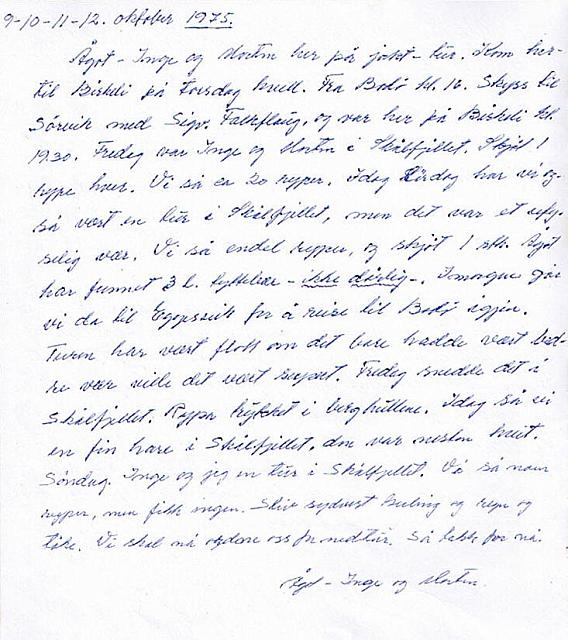 9-10-11-12. oktober 1975.
Ågot - Inge og Morten her på jakt-tur. Kom her-
til Birkeli på torsdag kveld. Fra Bodø kl. 16. Skyss til
Sørvik med Sigv. Falkflaug, og var her på Birkeli kl.
19.30. Fredag var Inge og Morten i Skålfjellet. Skjøt 1
rype hver. Vi så ca 20 ryper. Idag lørdag har vi og-
så vært en tur i Skålfjellet, men det var et ufy-
selig vær. Vi så endel ryper, og skjøt 1 stk. Ågot
har funnet 3 l. tyttebær - ikke dårlig -. Imorgen går
vi da til for å reise til Bodø igjen.
Turen har vært flott om det bare hadde vært bed-
re vær ville det vært supert. Fredag snedde det i
Skålfjellet. Rypa trykket i berghyllene. Idag så vi
en fin hare i Skålfjellet, den var nesten hvit.
Søndag. Inge og jeg en tur i Skålfjellet. Vi så noen
ryper, men fikk ingen. Stiv sydvest kuling og regn og
tåke. Vi skal nå ordne oss for nedtur. Så takk for nå.
Ågot - Inge og Morten.